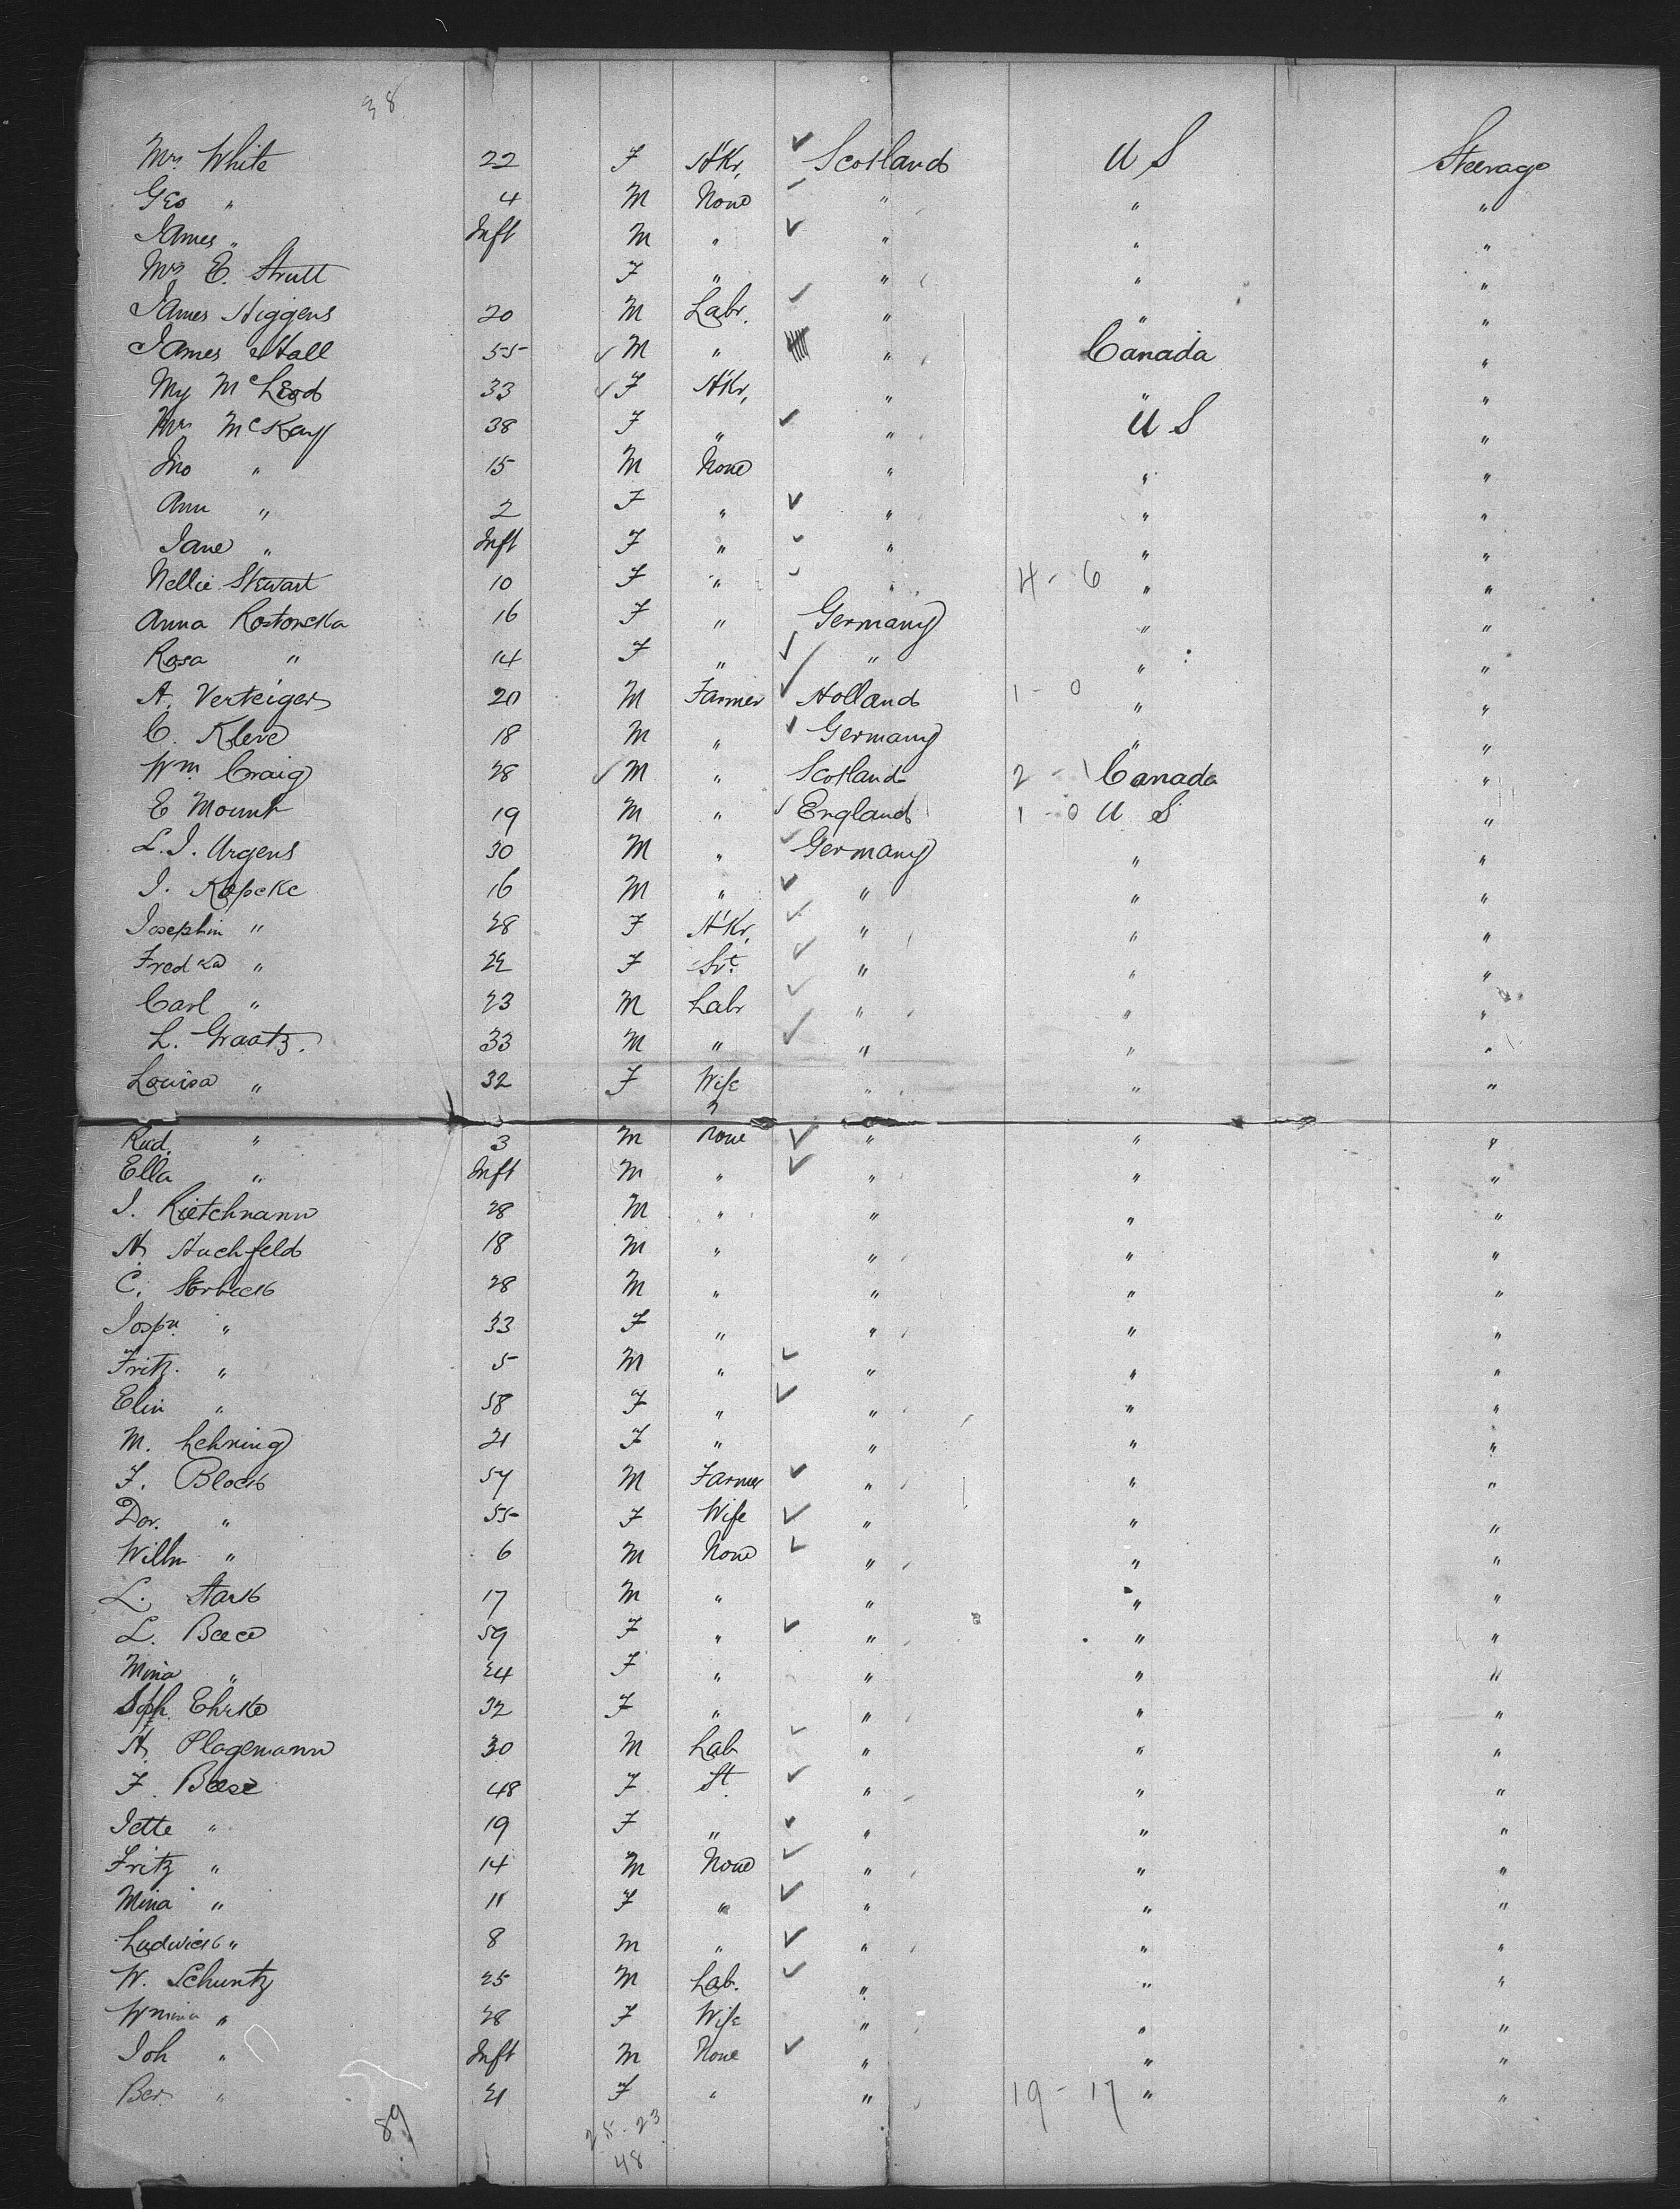 38
Mrs White 22 F H'Kr, Scotland U S Steerage
Geo " 4 M None " " "
James " Inft M " " " "
Mrs E. Strutt F " " " "
James Higgens 20 M Labr. " " "
James Hall 55 M " " Canada "
My McLeod 33 F H'Kr, " " "
Mrs McKay 38 F " " U S "
Jno " 15 M None " " "
Ann " 2 F " " " "
Jane " Inft F " " " "
Nellie Stewart 10 F " " 4-6 " "
Anna Rostonska 16 F " Germany " "
Rosa " 14 F " " " "
A. Verteiger 20 M Farmer Holland 1-0 " "
C. Kleve 18 M " Germany " "
Wm Craig 28 M " Scotland 2-1 Canada "
E Mount 19 M " England 1-0 U S "
L. J. Urgens 30 M " Germany " "
J. Kopcke 16 M " " " "
Josephin " 28 F H'Kr, " " "
Fredka " 22 F Svt " " "
Carl " 23 M Labr " " "
L. Graatz. 33 M " " " "
Louisa " 32 F Wife " " "
Rud. " 3 M None " " "
Ella " Inft M " " " "
J. Rietchmann 28 M " " " "
H. Huchfeld 18 M " " " "
C. Storbeck 28 M " " " "
Jospn. " 33 F " " " "
Fritz. " 5 M " " " "
Elin " 58 F " " " "
M. Lehring 21 F " " " "
F. Block 57 M Farmer " " "
Dor. " 55 F Wife " " "
Willm " 6 M None " " "
L. Stark 17 M " " " "
L. 59 F " " " "
Mina " 24 F " " " "
Soph. Ehrke 32 F " " " "
H. Plagemann 30 M Lab " " "
F. Beese 48 F St. " " "
Jette " 19 F " " " "
Fritz " 14 M None " " "
Mina " 11 F " " " "
Ludwick " 8 M " " " "
W. Schuntz 25 M Lab. " " "
Wmina " 28 F Wife " " "
Joh " Inft M None " " "
Ber. " 21 F " " 19-17 " "
89 25-23
48